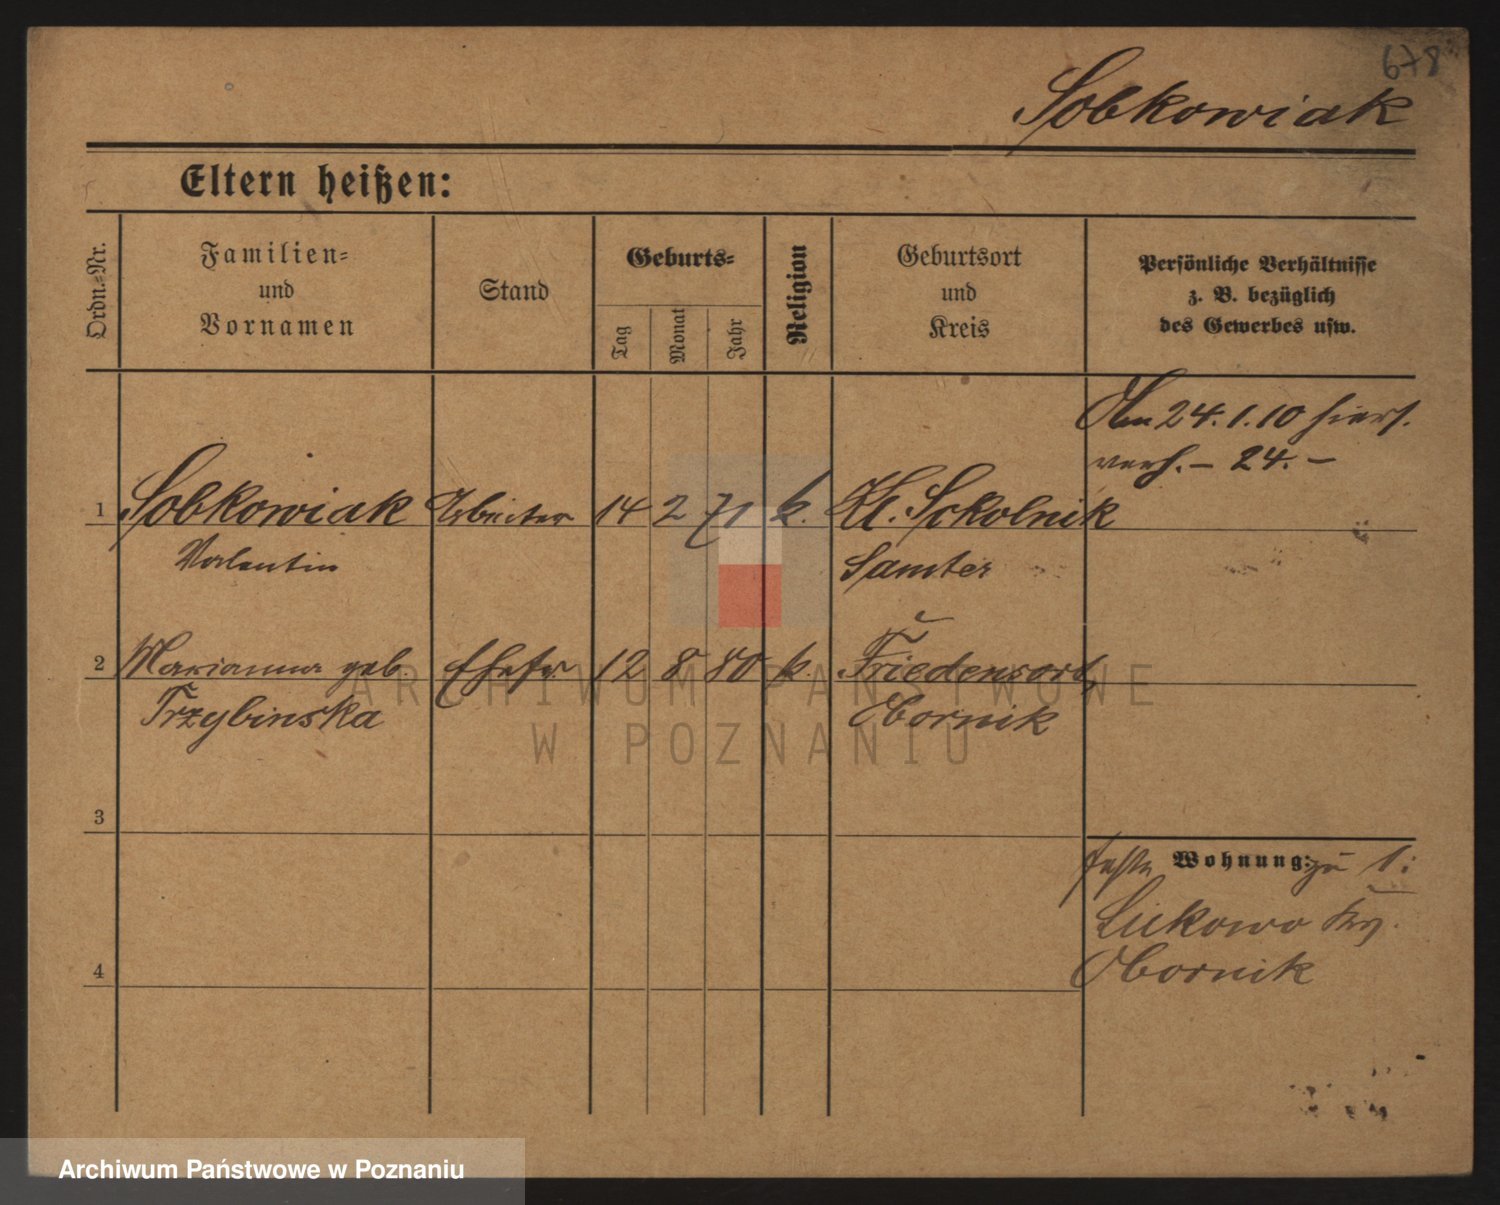 678
Sobkowiak
Eltern heißen:
Ordn.-Nr.
Familien-
und
Vornamen
Stand
Geburts-
Tag
Monat
Jahr
Religion
Geburtsort
und
Kreis
Persönliche Verhältnisse
z. B. bezüglich
des Gewerbes usw.
Am 24. 1. 10 hiers.
verh. – 24. –
1 Sobkowiak Arbeiter 14 2 71 k. Kl. Sokolnik
Valentin Samter
2 Marianna geb. Ehefr. 12 8 80 k. Friedensort,
Trzybinska Obornik
3
feste Wohnung: zu 1:
Lukowo Krs.
Obornik
4
ARCHIWUM PAŃSTWOWE
W POZNANIU
Archiwum Państwowe w Poznaniu